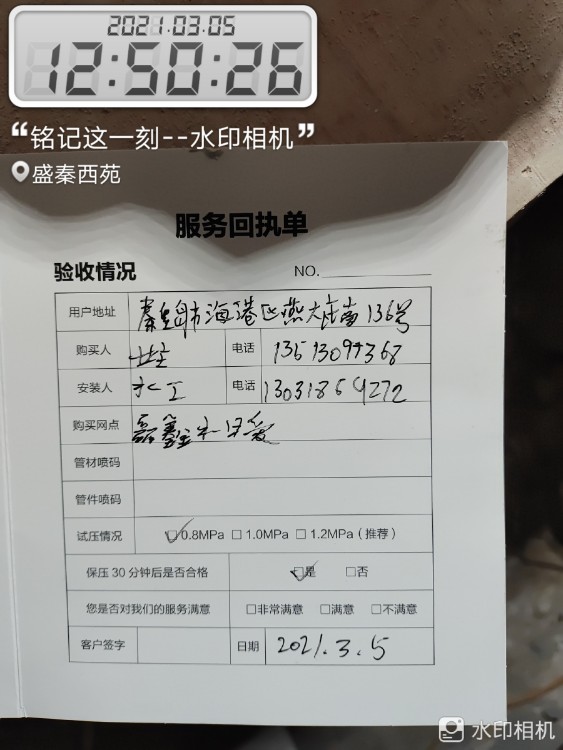 2021.03.05
12:50:26
“铭记这一刻--水印相机”
盛秦西苑
服务回执单
验收情况 NO.
用户地址 秦皇岛市海港区燕大南136号
购买人 电话
安装人 水工 电话
购买网点 磊鑫
管材喷码
管件喷码
试压情况 ☑0.8MPa □1.0MPa □1.2MPa（推荐）
保压30分钟后是否合格 ☑是 □否
您是否对我们的服务满意 □非常满意 □满意 □不满意
客户签字 日期 2021.3.5
水印相机